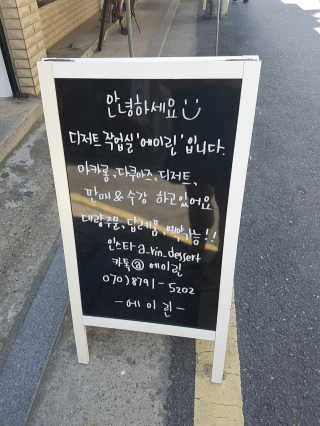 안녕하세요
디저트 작업실 '에이린' 입니다.
마카롱, 다쿠아즈, 디저트,
판매 & 수강 하고있어요
대량주문, 답례품, 예약가능!!
인스타 a_rin_dessert
카톡@ 에이린
070)8791-5202
-에이린-